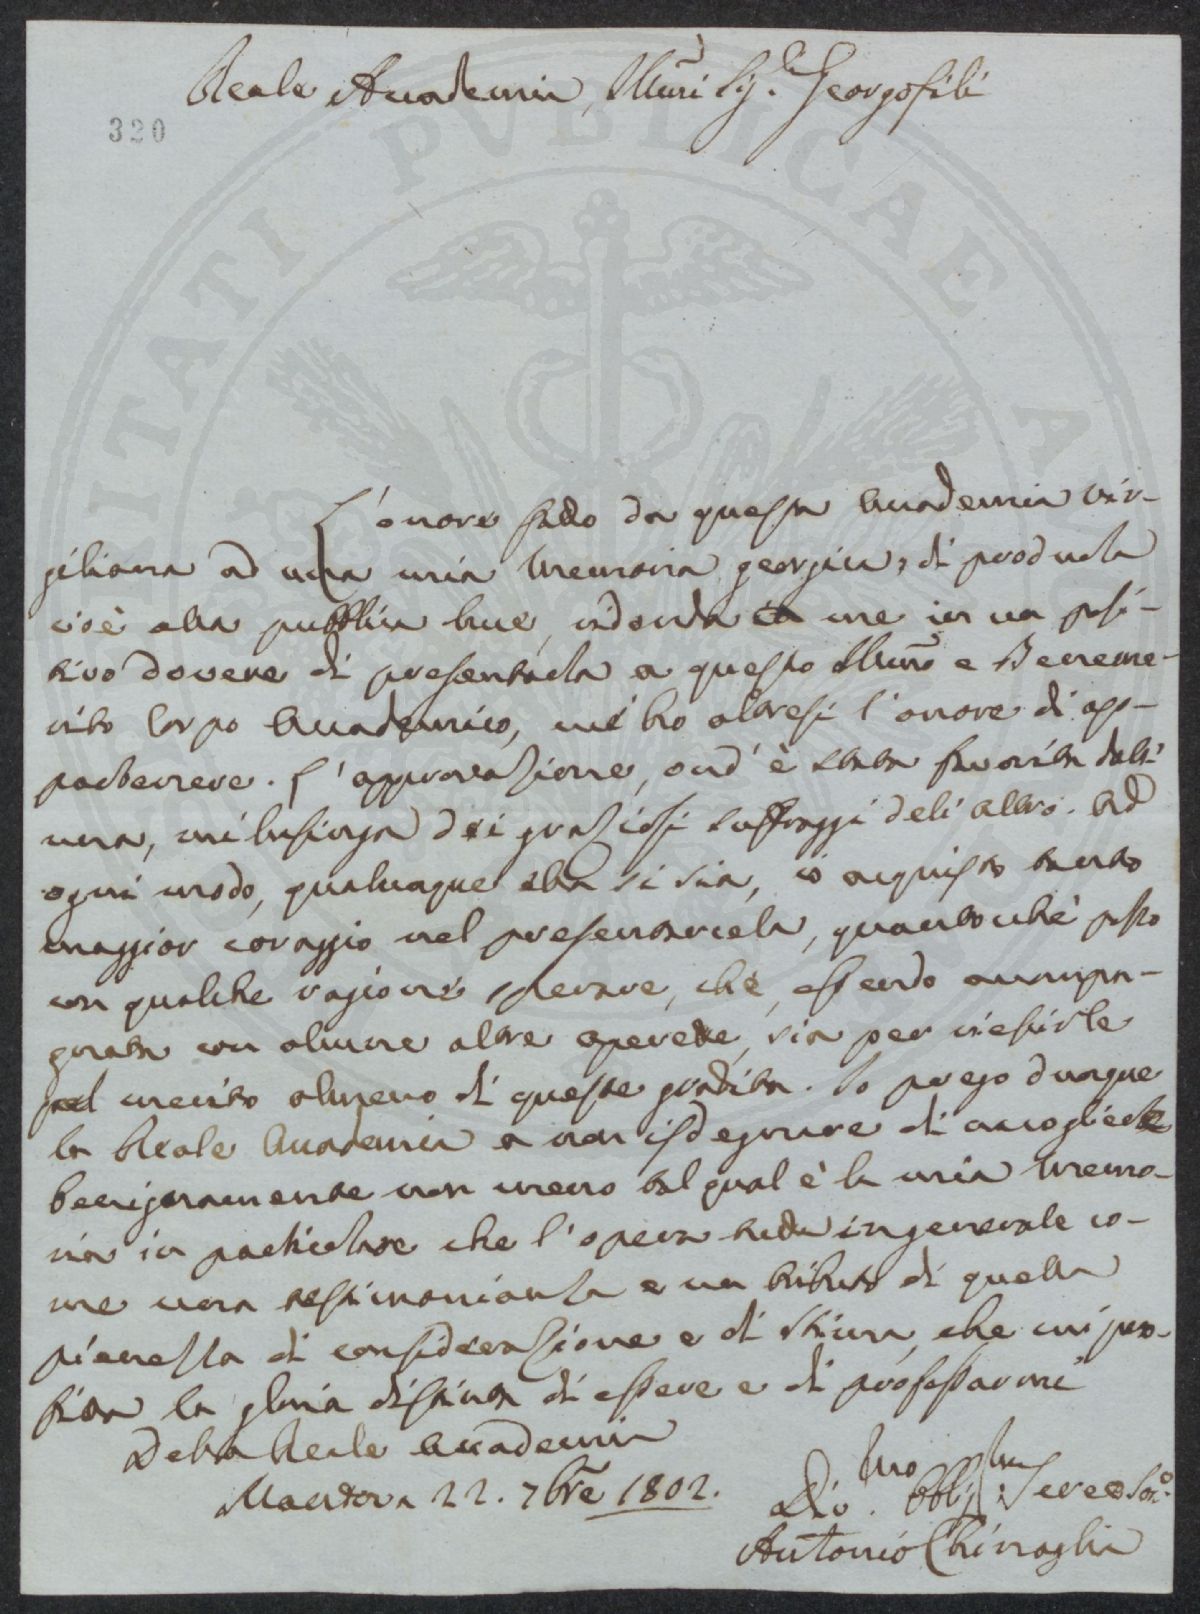 Reale Accademia, Illmi Sig.ri Georgofili
320
L'onore fatto da questa Accademia Vir-
giliana ad una mia Memoria georgica, di produrla
cioè alla pubblica luce, ridonda a me in un posi-
tivo dovere di presentarla a questo Illmo e Beneme-
rito Corpo Accademico, cui ho altresì l'onore di ap-
partenere. L'approvazione, ond'è stata favorita dall'
una, mi lusinga dei graziosi suffraggi dell'altro. Ad
ogni modo, qualunque ella si sia, io acquisto tanto
maggior coraggio nel presentarcela, quantochè posso
con qualche ragione sperare, che, essendo accompa-
gnata con alcune altre operette, sia per riescirle
pel merito almeno di queste gradita. Io prego dunque
la Reale Accademia a non isdegnare di accogliere
benignamente non meno tal qual è la mia Memo-
ria in particolare che l'opera tutta in generale co-
me una testimonianza e un tributo di quella
pienezza di considerazione e di stima, che mi pro-
fitta la gloria distinta di essere e di professarmi
Della Reale Accademia
Mantova 22. 7bre 1802.
Divmo Obblgmo Servo Soc.o
Antonio Chinaglia
PVBLICAE